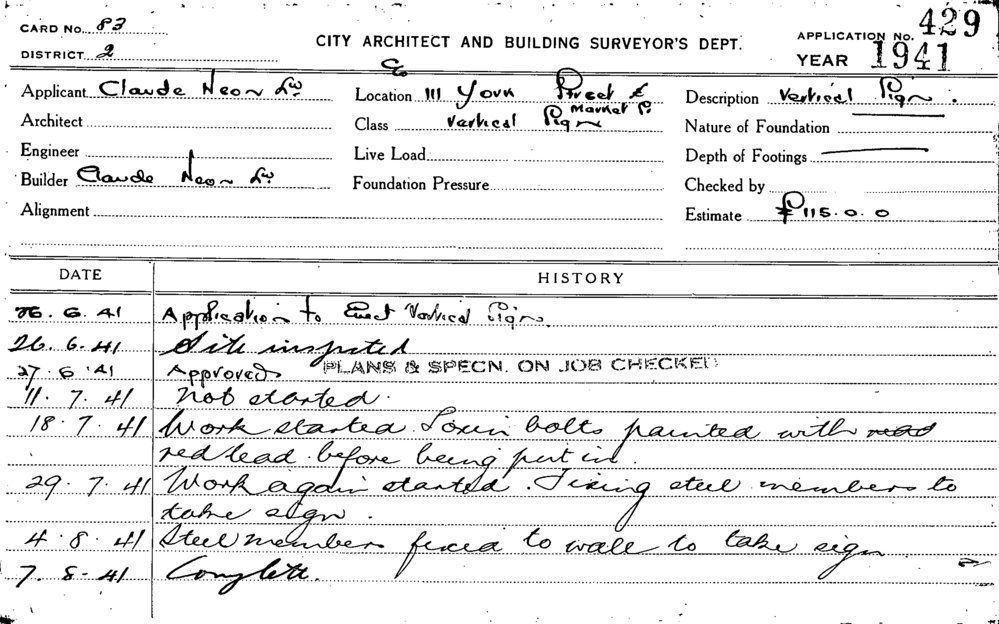 CARD No. 83
DISTRICT 2
CITY ARCHITECT AND BUILDING SURVEYOR'S DEPT.
APPLICATION No. 429
YEAR 1941
Applicant Claude Neon Ld.
Architect
Engineer
Builder Claude Neon Ld.
Alignment
Co
Location 111 York Street &
Market St
Class Vertical Sign
Live Load
Foundation Pressure
Description Vertical Sign.
Nature of Foundation
Depth of Footings
Checked by
Estimate £115.0.0
DATE HISTORY
26.6.41 Application to Erect Vertical Sign.
26.6.41 Site inspected
27.6.41 Approved PLANS & SPECN. ON JOB CHECKED
11.7.41 Not started.
18.7.41 Work started. bolts painted with read
red lead before being put in.
29.7.41 Work again started. Fixing steel members to
take sign.
4.8.41 Steel members fixed to wall to take sign
7.8.41 Complete.